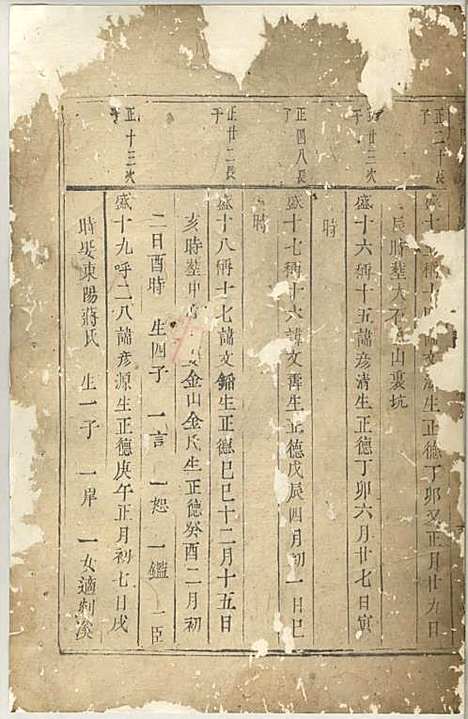 正二十長子
盛十 稱十 文 生正德丁卯又正月廿九日
辰時塟大 山裏坑
廿三次子
盛十六稱十五諱彥清生正德丁卯六月廿七日寅
時
正四八長子
盛十七稱十六諱文霽生正德戊辰四月初一日巳
時
正廿二長子
盛十八稱十七諱文 生正德己巳十二月十五日
亥時塟 金山金氏生正德癸酉二月初
二日酉時 生四子 一言 一恕 一鑑 一臣
正十三次子
盛十九呼二八諱彥源生正德庚午正月初七日戌
時娶東陽蔣氏 生一子 一岸 一女適剡溪